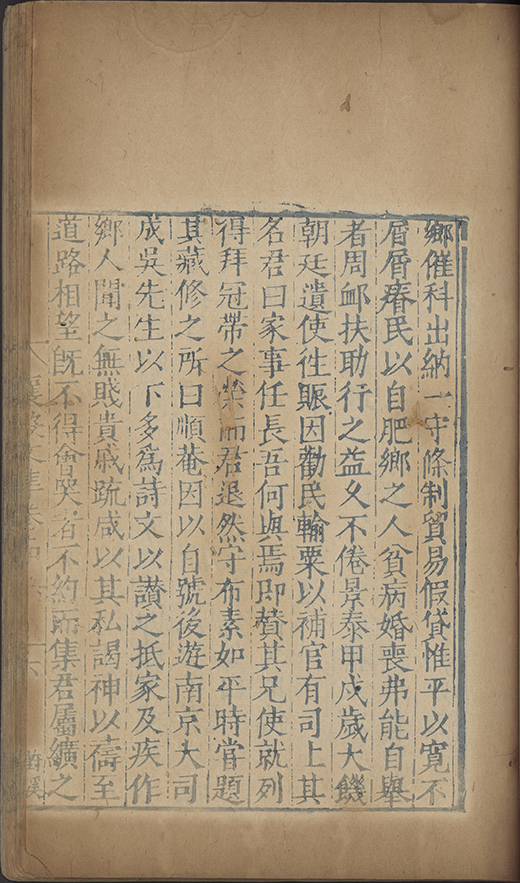 鄉催科出納一守條制貿易假貸惟平以寬不
屑屑瘠民以自肥鄉之人貧病婚喪弗能自舉
者周卹扶助行之益久不倦景泰甲戍歲大饑
朝廷遣使徃賑因勸民輸粟以補官有司上其
名君曰家事任長吾何與焉即贊其兄使就列
得拜冠帶之榮而君退然守布素如平時嘗題
其藏修之所曰順菴因以自號後遊南京大司
成吳先生以下多爲詩文以讃之抵家及疾作
鄉人聞之無賤貴戚疏咸以其私謁神以禱至
道路相望旣不得會哭者不約而集君屬纊之